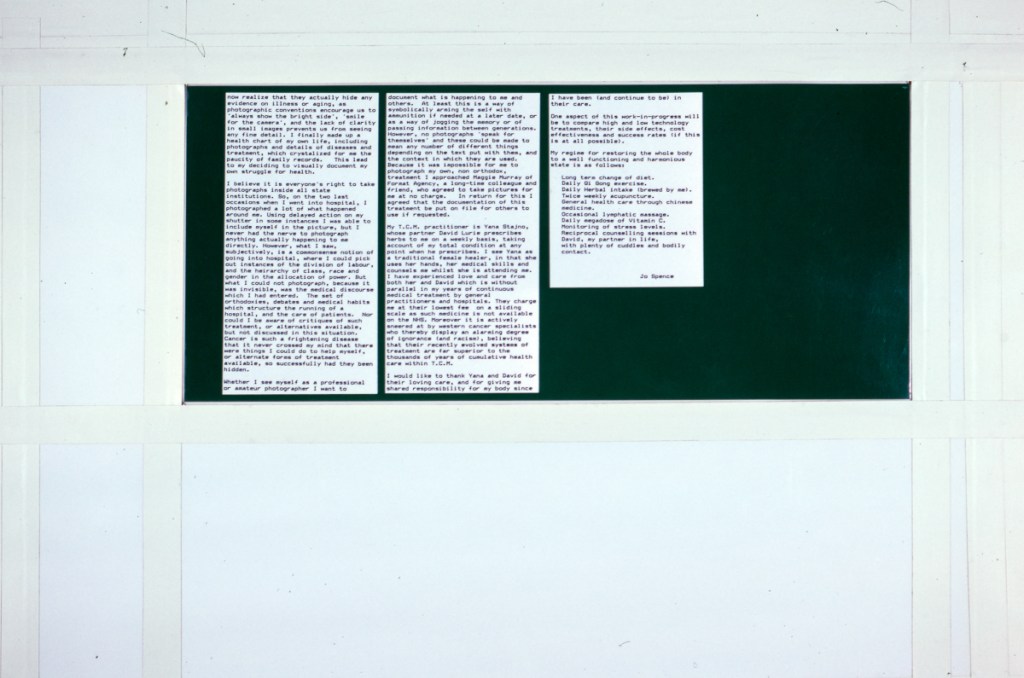 now realize that they actually hide any
evidence on illness or aging, as
photographic conventions encourage us to
'always show the bright side', 'smile
for the camera', and the lack of clarity
in small images prevents us from seeing
any fine detail. I finally made up a
health chart of my own life, including
photographs and details of diseases and
treatment, which crystalized for me the
paucity of family records. This lead
to my deciding to visually document my
own struggle for health.
I believe it is everyone's right to take
photographs inside all state
institutions. So, on the two last
occasions when I went into hospital, I
photographed a lot of what happened
around me. Using delayed action on my
shutter in some instances I was able to
include myself in the picture, but I
never had the nerve to photograph
anything actually happening to me
directly. However, what I saw,
subjectively, is a commonsense notion of
going into hospital, where I could pick
out instances of the division of labour,
and the heirarchy of class, race and
gender in the allocation of power. But
what I could not photograph, because it
was invisible, was the medical discourse
which I had entered. The set of
orthodoxies, debates and medical habits
which structure the running of a
hospital, and the care of patients. Nor
could I be aware of critiques of such
treatment, or alternatives available,
but not discussed in this situation.
Cancer is such a frightening disease
that it never crossed my mind that there
were things I could do to help myself,
or alternate forms of treatment
available, so successfully had they been
hidden.
Whether I see myself as a professional
or amateur photographer I want to
document what is happening to me and
others. At least this is a way of
symbolically arming the self with
ammunition if needed at a later date, or
as a way of jogging the memory or of
passing information between generations.
However, no photographs 'speak for
themselves' and these could be made to
mean any number of different things
depending on the text put with them, and
the context in which they are used.
Because it was impossible for me to
photograph my own, non orthodox,
treatment I approached Maggie Murray of
Format Agency, a long-time colleague and
friend, who agreed to take pictures for
me at no charge. In return for this I
agreed that the documentation of this
treatment be put on file for others to
use if requested.
My T.C.M. practitioner is Yana Stajno,
whose partner David Lurie prescribes
herbs to me on a weekly basis, taking
account of my total condition at any
point when he prescribes. I see Yana as
a traditional female healer, in that she
uses her hands, her medical skills and
counsels me whilst she is attending me.
I have experienced love and care from
both her and David which is without
parallel in my years of continuous
medical treatment by general
practitioners and hospitals. They charge
me at their lowest fee on a sliding
scale as such medicine is not available
on the NHS. Moreover it is actively
sneered at by western cancer specialists
who thereby display an alarming degree
of ignorance (and racism), believing
that their recently evolved systems of
treatment are far superior to the
thousands of years of cumulative health
care within T.C.M.
I would like to thank Yana and David for
their loving care, and for giving me
shared responsibility for my body since
I have been (and continue to be) in
their care.
One aspect of this work-in-progress will
be to compare high and low technology
treatments, their side effects, cost
effectiveness and success rates (if this
is at all possible).
My regime for restoring the whole body
to a well functioning and harmonious
state is as follows:
Long term change of diet.
Daily Qi Gong exercise.
Daily Herbal intake (brewed by me).
Twice weekly acupuncture.
General health care through chinese
medicine.
Occasional lymphatic massage.
Daily megadose of Vitamin C.
Monitoring of stress levels.
Reciprocal counselling sessions with
David, my partner in life,
with plenty of cuddles and bodily
contact.
Jo Spence